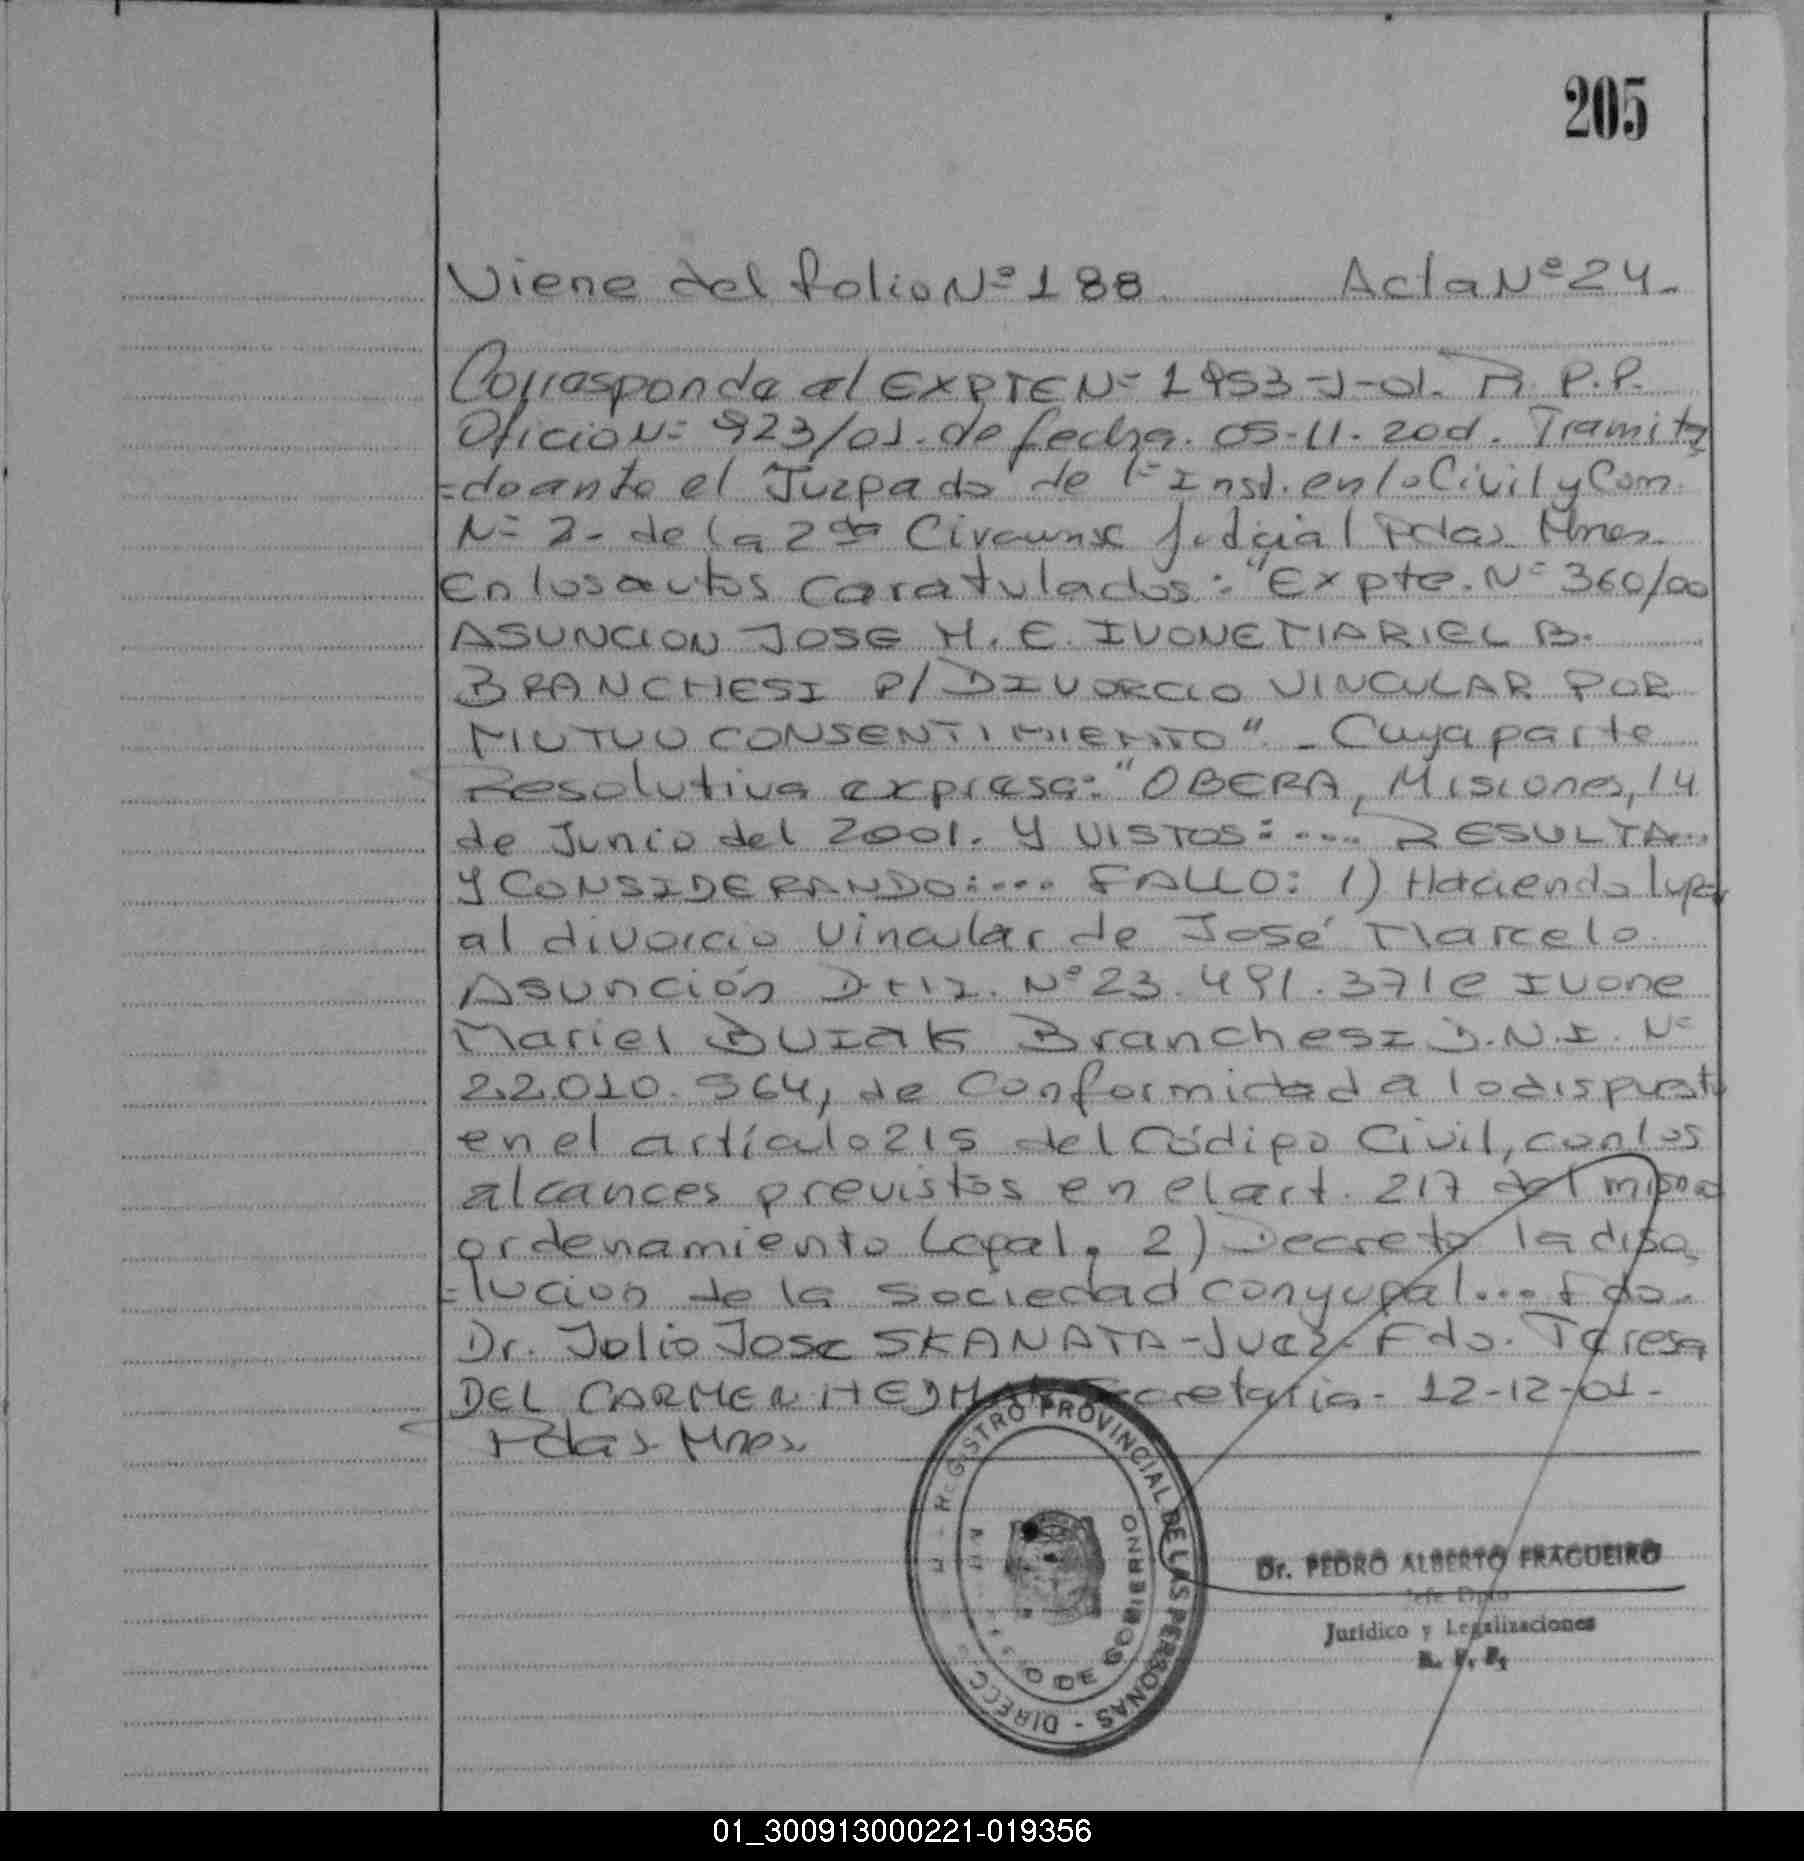 205
Viene del folio Nº 188 Acta Nº 24.
Corresponde al EXPTE Nº 1953-J-01. R.P.P.
Oficio Nº 923/01. de fecha. 05-11-2001. Tramita
=do ante el Juzgado de 1º Inst. en lo Civil y Com.
Nº 2- de la 2da Circunsc Judicial Pdas. Mnes.
En los autos caratulados: "Expte. Nº 360/00
ASUNCION JOSE M. E. IVONE MARIEL B.
BRANCHESI P/ DIVORCIO VINCULAR POR
MUTUO CONSENTIMIENTO". - Cuya parte
Resolutiva expresa: "OBERA, Misiones, 14
de Junio del 2001. Y VISTOS: .... RESULTA...
Y CONSIDERANDO:.... FALLO: 1) Haciendo lugar
al divorcio vincular de José Marcelo
Asunción D.N.I. Nº 23.491.371 e Ivone
Mariel BUIAK Branchesi D.N.I. Nº
22.010.964, de conformidad a lo dispuesto
en el artículo 215 del Código Civil, con los
alcances previstos en el art. 217 del mismo
ordenamiento Legal. 2) Decreto la diso
=lucion de la sociedad conyugal... Fdo.
Dr. Julio Jose SKANATA-Juez-Fdo. Teresa
DEL CARMEN HEDMAN Secretaria- 12-12-01-
Pdas- Mnes.
REGISTRO PROVINCIAL DE LAS PERSONAS - DIRECC
O DE GOBIERNO
Dr. PEDRO ALBERTO FRAGUEIRO
Jefe Dpto
Jurídico y Legalizaciones
R. P. P.
01_300913000221-019356